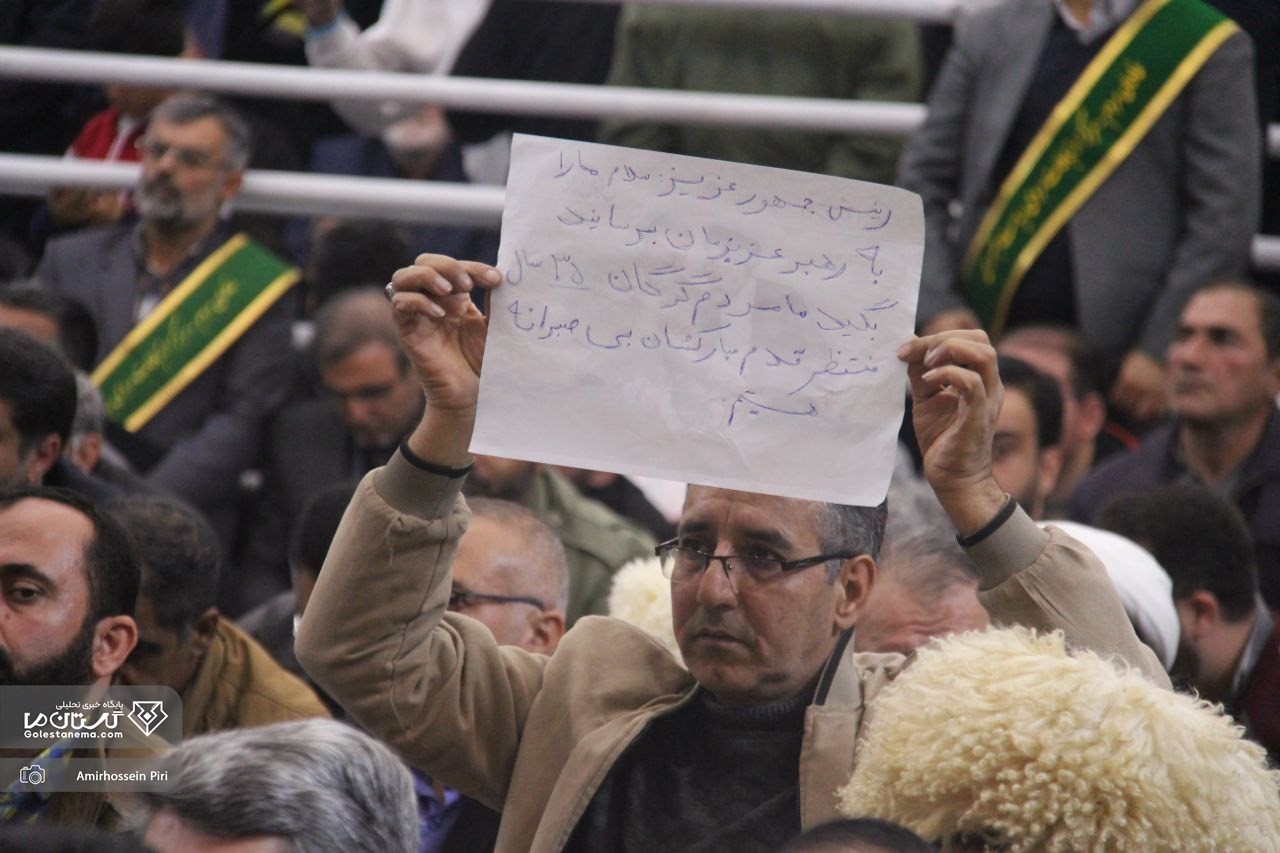 رئیس جمهور عزیز: سلام ما را
به رهبر عزیزمان برسانید
بگید ما مردم گرگان ۳۵ سال
منتظر قدم مبارکشان بی صبرانه
هستیم.
پایگاه خبری تحلیلی
گلستان ما
Golestanema.com
Amirhossein Piri